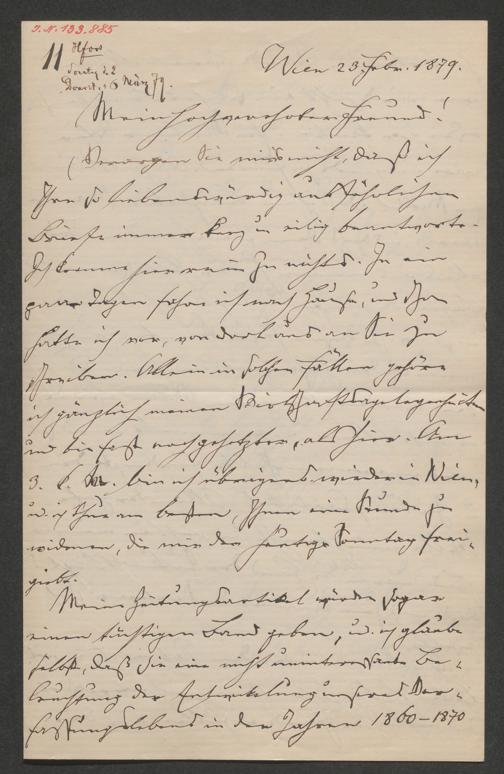 I.N. 133.885
11
Wien 23. Febr. 1879.
Mein hochverehrter Freund!
Verargen Sie mir's nicht, daß ich
Ihre so liebenswürdig ausführlichen
Briefe immer kurz u eilig beantworte.
Ich komme hier rein zu nichts. In ein
paar Tagen fahre ich nach Hause, und schon
hatte ich vor, von dort aus an Sie zu
schreiben. Allein in solchen Fällen gehöre
ich gänzlich meinen Wirthschaftsangelegenheiten
und bin fast noch gehetzter, als hier. Am
3. k. M. bin ich übrigens wieder in Wien,
u. ich thue am besten, Ihnen eine Stunde zu
widmen, die mir der heutige Sonntag frei-
giebt.
Meine Zeitungsartikel würden sogar
einen tüchtigen Band geben, u. ich glaube
selbst, daß sie eine nicht uninteressante Be-
leuchtung der Entwickelung unseres Ver-
fassungslebens in den Jahren 1860–1870